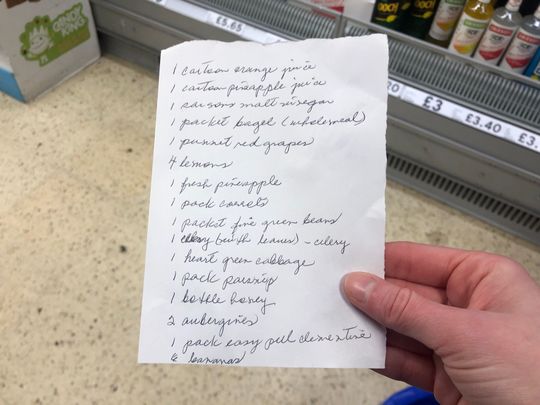 £5.65
HOOCH
HOOCH
£3
£3.40
£3.
20
1 carton orange juice
1 carton pineapple juice
1 sarsons malt vinegar
1 packet bagel (wholemeal)
1 punnet red grapes
4 lemons
1 fresh pineapple
1 pack carrots
1 packet fine green beans
1 celery (with leaves) - celery
1 heart green cabbage
1 pack parsnip
1 bottle honey
2 aubergines
1 pack easy peel clementine
6 bananas